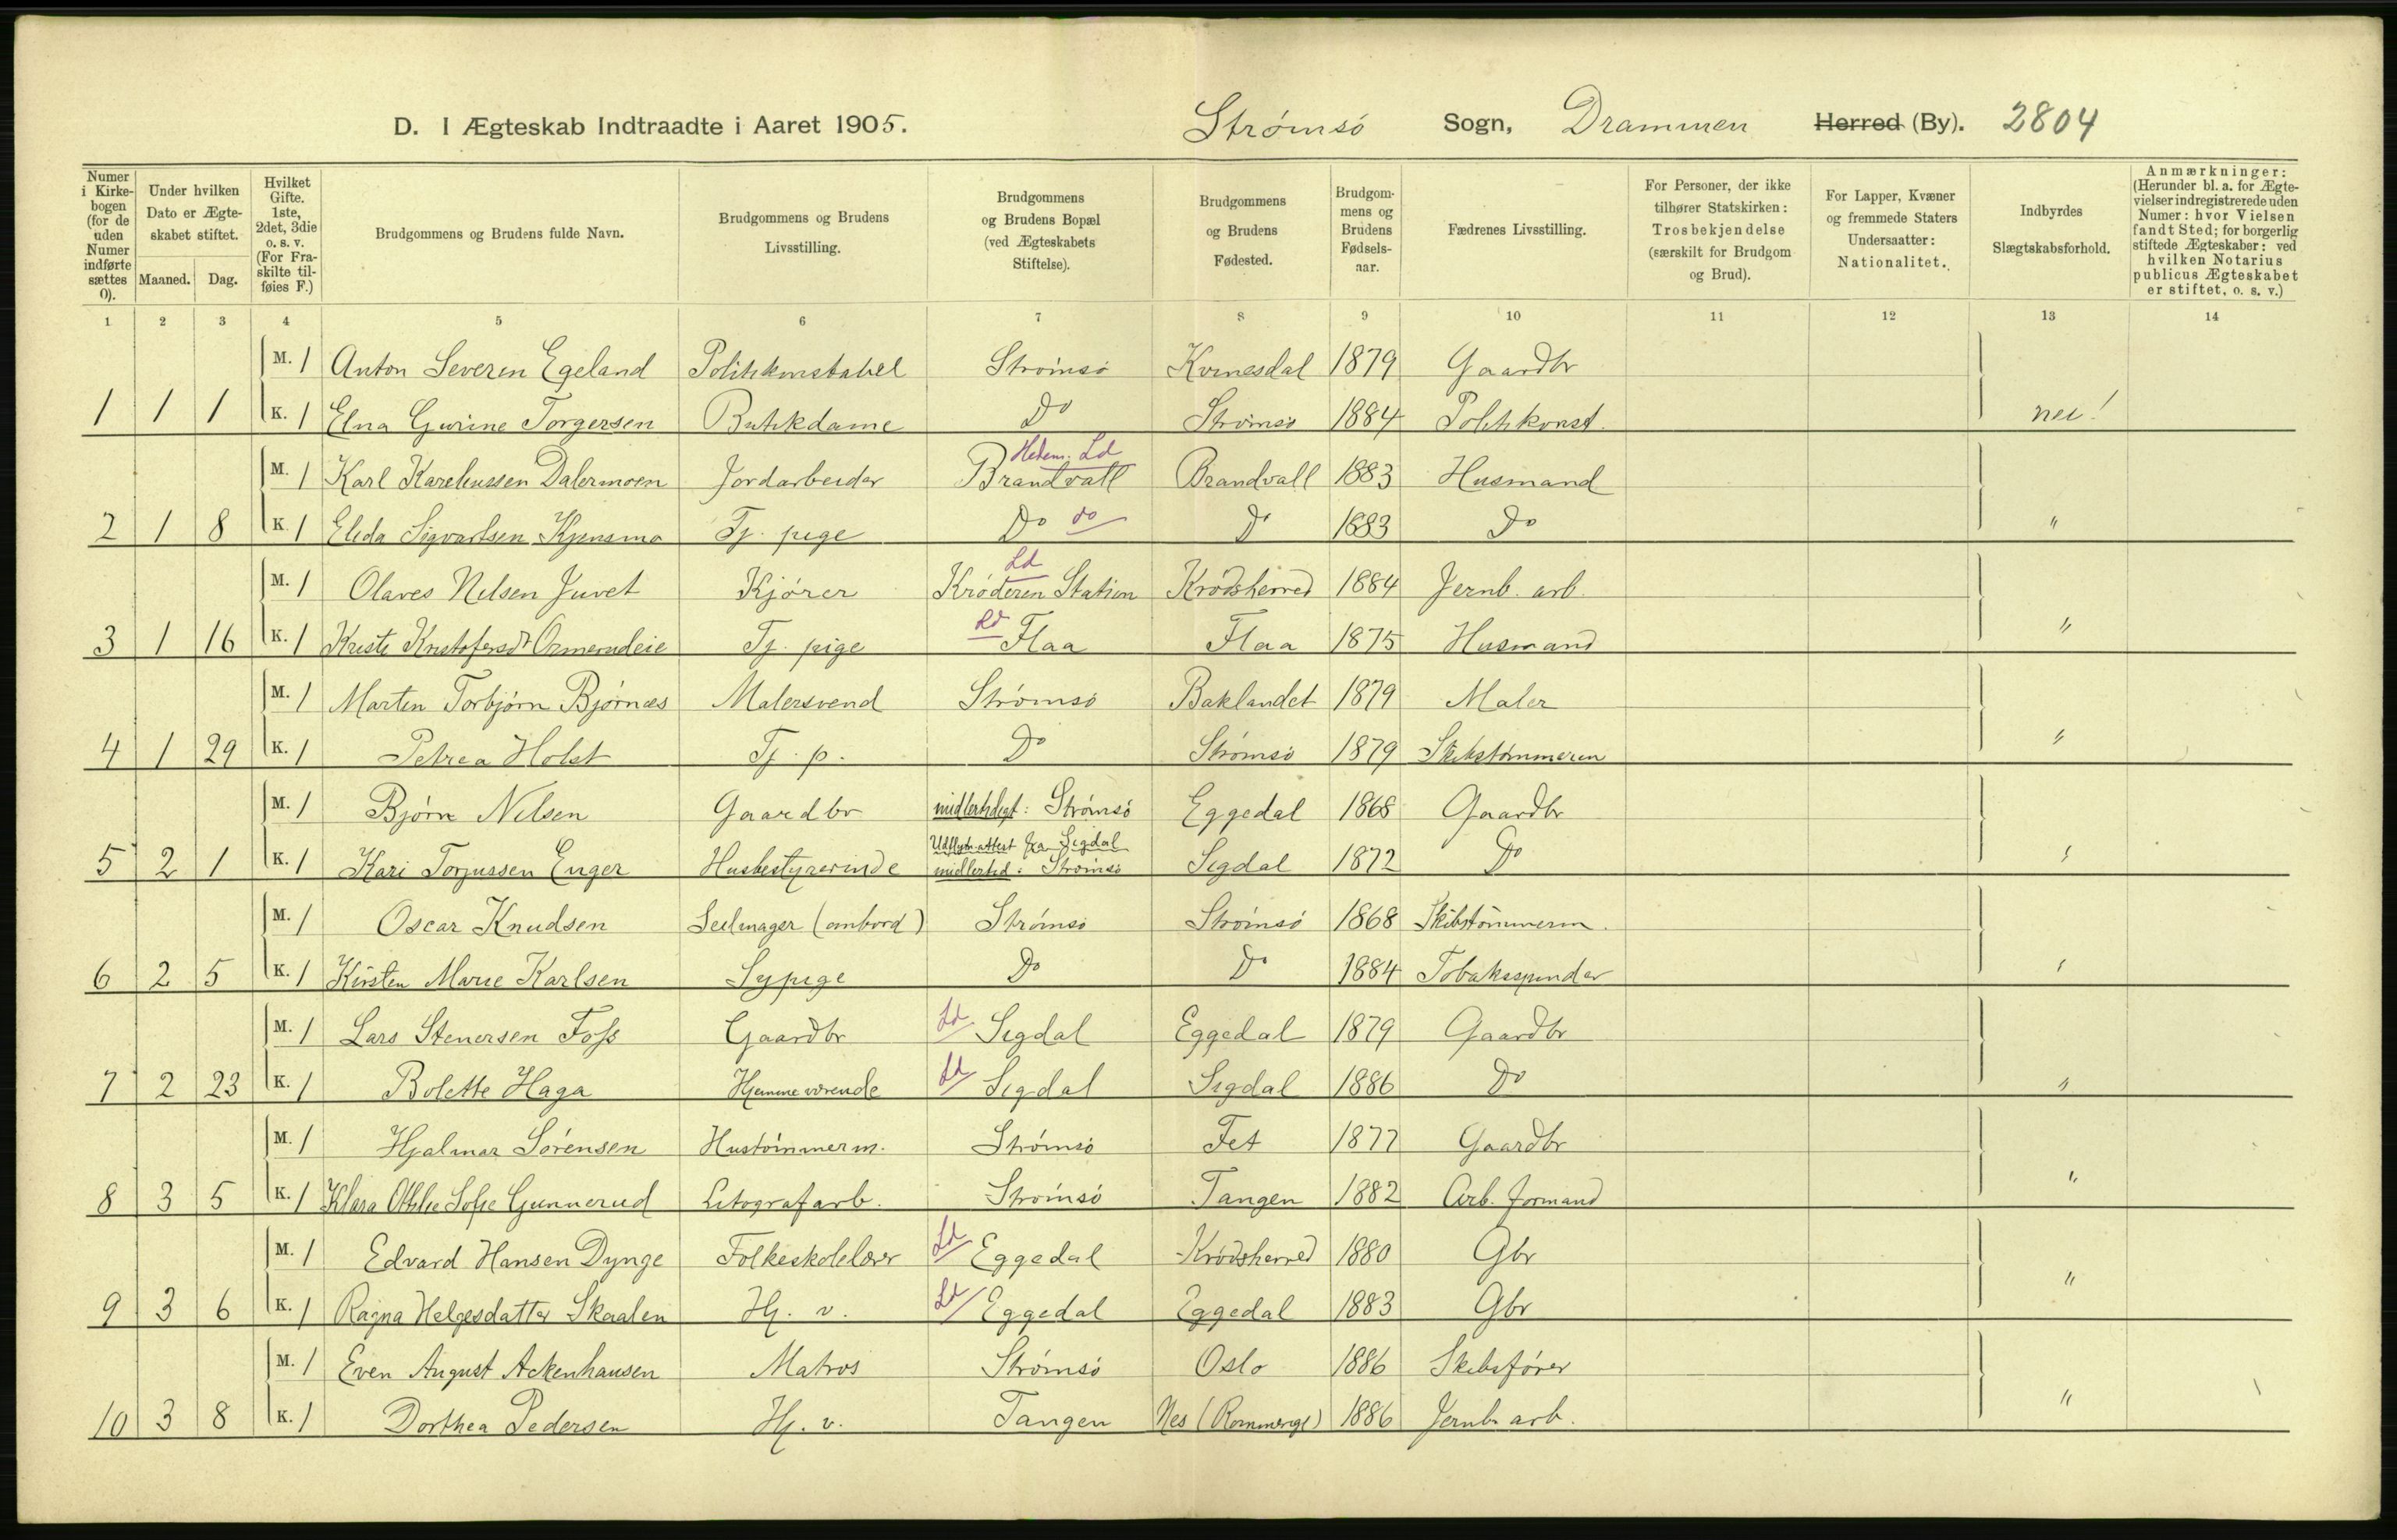 D. I Ægteskab Indtraadte i Aaret 1905. Strømsö Sogn, Drammen Herred (By). 2804
Numer i Kirkebogen (for de uden Numer indførte sættes 0).
Under hvilken Dato er Ægteskabet stiftet.
Maaned. Dag.
Hvilket Gifte. 1ste, 2det, 3die o. s. v. (For Fraskilte tilføies F.)
Brudgommens og Brudens fulde Navn.
Brudgommens og Brudens Livsstilling.
Brudgommens og Brudens Bopæl (ved Ægteskabets Stiftelse).
Brudgommens og Brudens Fødested.
Brudgommens og Brudens Fødselsaar.
Fædrenes Livsstilling.
For Personer, der ikke tilhører Statskirken: Trosbekjendelse (særskilt for Brudgom og Brud).
For Lapper, Kvæner og fremmede Staters Undersaatter: Nationalitet.
Indbyrdes Slægtskabsforhold.
Anmærkninger: (Herunder bl. a. for Ægtevielser indregistrerede uden Numer: hvor Vielsen fandt Sted; for borgerlig stiftede Ægteskaber: ved hvilken Notarius publicus Ægteskabet er stiftet, o. s. v.)
1 2 3 4 5 6 7 8 9 10 11 12 13 14
M. 1 Anton Severin Egeland Politikonstabel Strømsö Kvinesdal 1879 Gaardbr
1 1 1 K. 1 Elna Gurine Torgersen Butikdame Do Strømsö 1884 Politikonst. nei!
Hedem. Ld
M. 1 Karl Dalermoen Jordarbeider Brandvall Brandvall 1883 Husmand
2 1 8 K. 1 Elida Sigvartsen Kjensmo Tj. pige Do do Do 1883 Do "
Ld
M. 1 Olaves Nilsen Juvet Kjörer Kröderen Station Krödsherred 1884 Jernb. arb.
3 1 16 K. 1 Kristi Kristofersdt Ormerudeie Tj. pige Ld Flaa Flaa 1875 Husmand "
M. 1 Marten Torbjørn Bjørnæs Malersvend Strømsö Baklandet 1879 Maler
4 1 29 K. 1 Petrea Holst Tj. p. Do Strømsö 1879 Skibstömmerm "
M. 1 Bjørn Nilsen Gaardbr midlertidigt: Strømsö Eggedal 1868 Gaardbr
Udflytn.attest fra Sigdal
5 2 1 K. 1 Kari Torjussen Enger Husbestyrerinde midlertid: Strømsö Sigdal 1872 Do "
M. 1 Oscar Knudsen Seilmager (ombord) Strømsö Strømsö 1868 Skibstömmerm.
6 2 5 K. 1 Kirsten Marie Karlsen Sypige Do Do 1884 Tobakspinder "
M. 1 Lars Stenersen Foss Gaardbr Ld Sigdal Eggedal 1879 Gaardbr
7 2 23 K. 1 Bolette Haga Hjemmeværende Ld Sigdal Sigdal 1886 Do "
M. 1 Hjalmar Sörensen Hustömmerm. Strømsö Fet 1877 Gaardbr
8 3 5 K. 1 Klara Othilie Sofie Gunnerud Litografarb. Strømsö Tangen 1882 Arb. formand "
M. 1 Edvard Hansen Dynge Folkeskolelærer Ld Eggedal Krödsherred 1880 Gbr
9 3 6 K. 1 Ragna Helgesdatter Skaalen Hj. v. Ld Eggedal Eggedal 1883 Gbr "
M. 1 Even August Ackenhausen Matros Strømsö Oslo 1886 Skibsfører
10 3 8 K. 1 Dorthea Pedersen Hj. v. Tangen Nes (Romerige) 1886 Jernb. arb. "